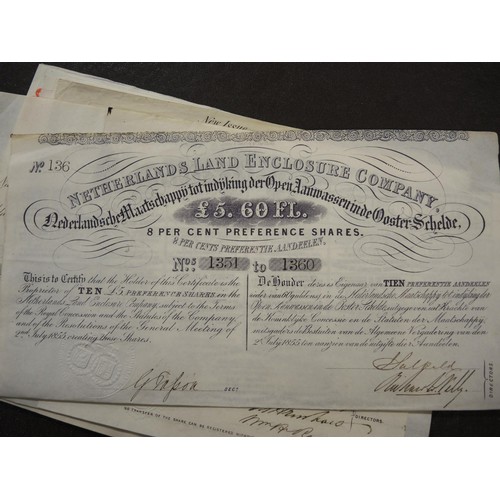 New
No. 136
NETHERLANDS LAND ENCLOSURE COMPANY.
Nederlandsche Maatschappij tot indijking der Open Aanwassen in de Ooster Schelde.
£5. 60 Fl.
8 PER CENT PREFERENCE SHARES.
8 PER CENTS PREFERENTIE AANDEELEN,
Nos. 1351 to 1360
This is to Certify that the Holder of this Certificate is the
Proprietor of TEN £5 PREFERENCE SHARES in the
Netherlands Land Enclosure Company, subject to the Terms
of the Royal Concession and the Statutes of the Company,
and of the Resolutions of the General Meeting of
2nd July 1855 creating those Shares.
De Houder dezes is Eigenaar van TIEN PREFERENTIE AANDEELEN
ieder van in de Nederlandsche Maatschappij tot indijking der
Open Aanwassen in de Ooster Schelde, uitgegeven uit Krachte van
de Koninklijke Concessie en de Statuten der Maatschappij,
mitsgaders de Besluiten van de Algemeene Vergadering van den
2e July 1855 ten aanzien van de uitgifte der Aandeelen.
DIRECTORS
DIRECTORS.
TRANSFER OF THE SHARE CAN BE REGISTERED